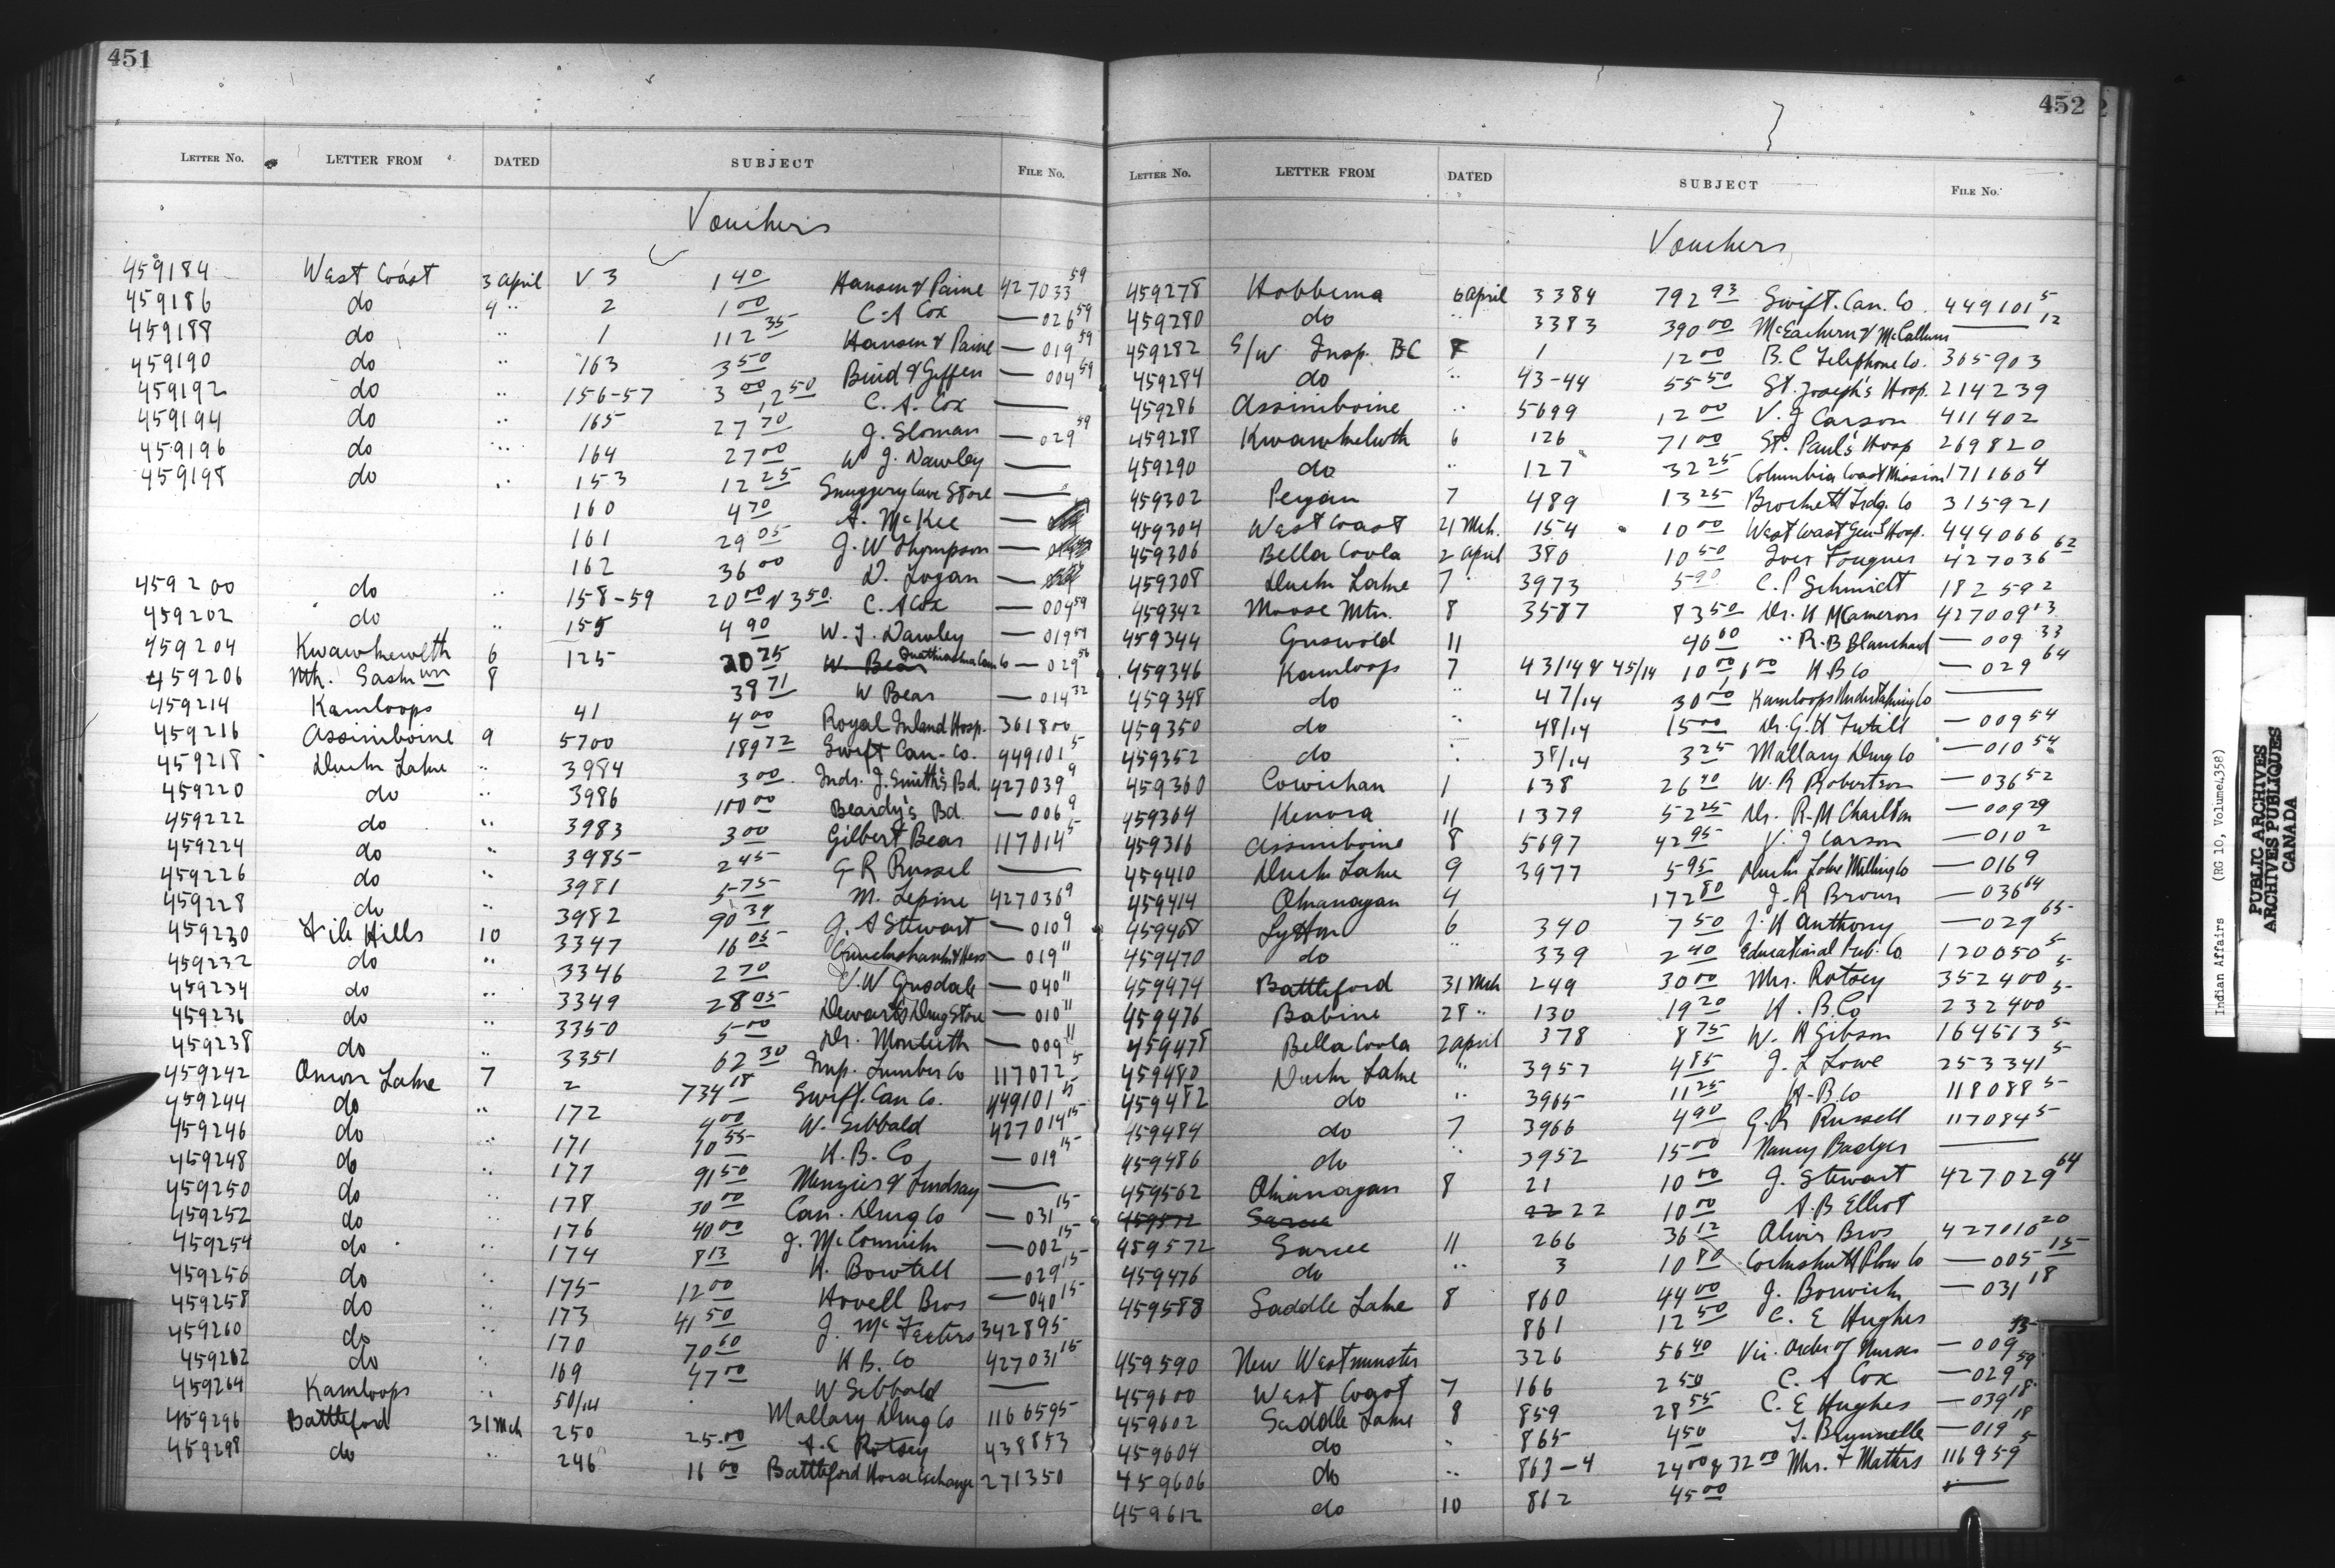 451
LETTER No. LETTER FROM DATED SUBJECT FILE No.
Vouchers
459184 West Coast 3 April V 3 1 40 Hansen & Paine 427033 59
459186 do 4 " 2 1 00 C. A Cox — 026 59
459188 do " 1 112 35 Hansen & Paine — 019 59
459190 do " 163 3 50 Bird & Giffen — 004 59
459192 do " 156-57 3 00, 2 50 C. A. Cox —
459194 do " 165 27 70 J. Sloman — 029 59
459196 do " 164 27 00 W J. Dawley —
459198 do " 153 12 25 Snuggery Cove Store —
160 4 70 A. McKee —
161 29 05 J. W Thompson —
162 36 00 D. Logan —
459200 do " 158-59 20 00 & 3 50 C. A Cox — 004 59
459202 do " 155 4 90 W. J. Dawley — 019 59
459204 Kwawkewlth 6 125 20 25 W. Bear Quathiaska Can Co — 029 56
459206 Nth. Saskwn 8 38 71 W Bear — 014 32
459214 Kamloops 41 4 00 Royal Inland Hosp. 361800
459216 Assiniboine 9 5700 189 72 Swift Can. Co. 449101 5
459218 Duck Lake " 3984 3 00 Inds. J. Smith's Bd. 427039 9
459220 do 3986 100 00 Beardy's Bd. — 006 9
459222 do " 3983 3 00 Gilbert Bear 117014 5
459224 do " 3985 2 45 G R Russel —
459226 do " 3981 5 75 M. Lepine 427036 9
459228 do " 3982 90 39 J. A Stewart — 010 9
459230 File Hills 10 3347 16 05 — 019 11
459232 do " 3346 2 70 J. W Gusdale — 040 11
459234 do " 3349 28 05 Dewart's Drug Store — 010 11
459236 do " 3350 5 00 Dr. Monteith — 009 11
459238 do " 3351 62 30 Imp. Lumber Co 117072 5
459242 Onion Lake 7 2 734 18 Swift. Can Co. 449101 15
459244 do " 172 4 00 W. Sibbald 427014 15
459246 do " 171 10 55 H. B. Co — 019 15
459248 do " 177 91 50 Menzies & Lindsay —
459250 do " 178 30 00 Can. Drug Co — 031 15
459252 do " 176 40 00 J. McCormick — 002 15
459254 do " 174 8 13 H. Bowtell — 029 15
459256 do " 175 12 00 Hovell Bros — 040 15
459258 do " 173 41 50 J. McFeeters 342895
459260 do " 170 70 60 H B. Co 427031 15
459262 do " 169 47 00 W Sibbald —
459264 Kamloops " 50/14 Mallary Drug Co 116659 5
459296 Battleford 31 Mch 250 25.00 A. E Rotsey 438853
459298 do " 246 16 00 Battleford Horse Exchange 271350
452
LETTER No. LETTER FROM DATED SUBJECT FILE No.
Vouchers
459278 Hobbema 6 April 3384 792 93 Swift. Can. Co. 449101 5
459280 do " 3383 390 00 McEachern & McCallum — 12
459282 S/W Insp. BC 8 1 12 00 B. C Telephone Co. 365903
459284 do " 43-44 55 50 St. Joseph's Hosp. 214239
459286 Assiniboine " 5699 12 00 V. J Carson 411402
459288 Kwawkewlth 6 126 71 00 St. Paul's Hosp 269820
459290 do " 127 32 25 Columbia Coast Mission 171160 4
459302 Peigan 7 489 13 25 Brockett Trdg. Co 315921
459304 West Coast 21 Mch. 154 10 00 West Coast Genl Hosp. 444066
459306 Bella Coola 2 April 380 10 50 Iver Fougner 427036 62
459308 Duck Lake 7 " 3973 5 90 C. P Schmidt 182592
459342 Moose Mtn. 8 3587 83 50 Dr. H M Cameron 427009 13
459344 Griswold 11 46 60 " R. B Blanchard — 009 33
459346 Kamloops 7 43/14 & 45/14 10 00, 6 00 H B Co — 029 64
459348 do " 47/14 30 00 Kamloops Undertaking Co —
459350 do " 48/14 15 00 Dr. G. H Tutill — 009 54
459352 do " 38/14 3 25 Mallary Drug Co — 010 54
459360 Cowichan 1 138 26 40 W. R Robertson — 036 52
459364 Kenora 11 1379 52 25 Dr. R. M Charlton — 009 29
459366 Assiniboine 8 5697 42 95 V. J Carson — 010 2
459410 Duck Lake 9 3977 5 95 Duck Lake Milling Co — 016 9
459414 Okanagan 4 172 80 J. R Brown — 036 64
459468 Lytton 6 340 7 50 J. H Anthony — 029 65
459470 do " 339 2 40 Educational Pub. Co 120050 5
459474 Battleford 31 Mch 249 30 00 Mrs. Rotsey 352400 5
459476 Babine 28 " 130 19 20 H. B. Co 232400 5
459478 Bella Coola 2 April 378 8 75 W. H Gibson 164513 5
459480 Duck Lake " 3957 4 85 J. L Lowe 253341 5
459482 do " 3965 11 25 H. B. Co 118088 5
459484 do 7 3966 4 90 G. R Russell 117084 5
459486 do " 3952 15 00 Nancy Badger —
459562 Okanagan 8 21 10 00 J. Stewart 427029 64
459572 Sarcee 22 22 10 00 A. B Elliot
459572 Sarcee 11 266 36 12 Olivir Bros 427010 20
459476 do " 3 10 80 Cockshutt Plow Co — 005 15
459588 Saddle Lake 8 860 44 00 J. Borwick — 031 18
861 12 50 C. E Hughes
459590 New Westminster 326 56 40 Vic. Order of Nurses — 009
459600 West Coast 7 166 2 50 C. A Cox — 029 59
459602 Saddle Lake 8 859 28 55 C. E Hughes — 039 18
459604 do " 865 4 50 J. Brunnelle — 019 18
459606 do " 863-4 24 00 & 32 00 Mrs. F Matters 116959 5
459612 do 10 862 45 00 —
Indian Affairs (RG 10, Volume 4358)
PUBLIC ARCHIVES
ARCHIVES PUBLIQUES
CANADA